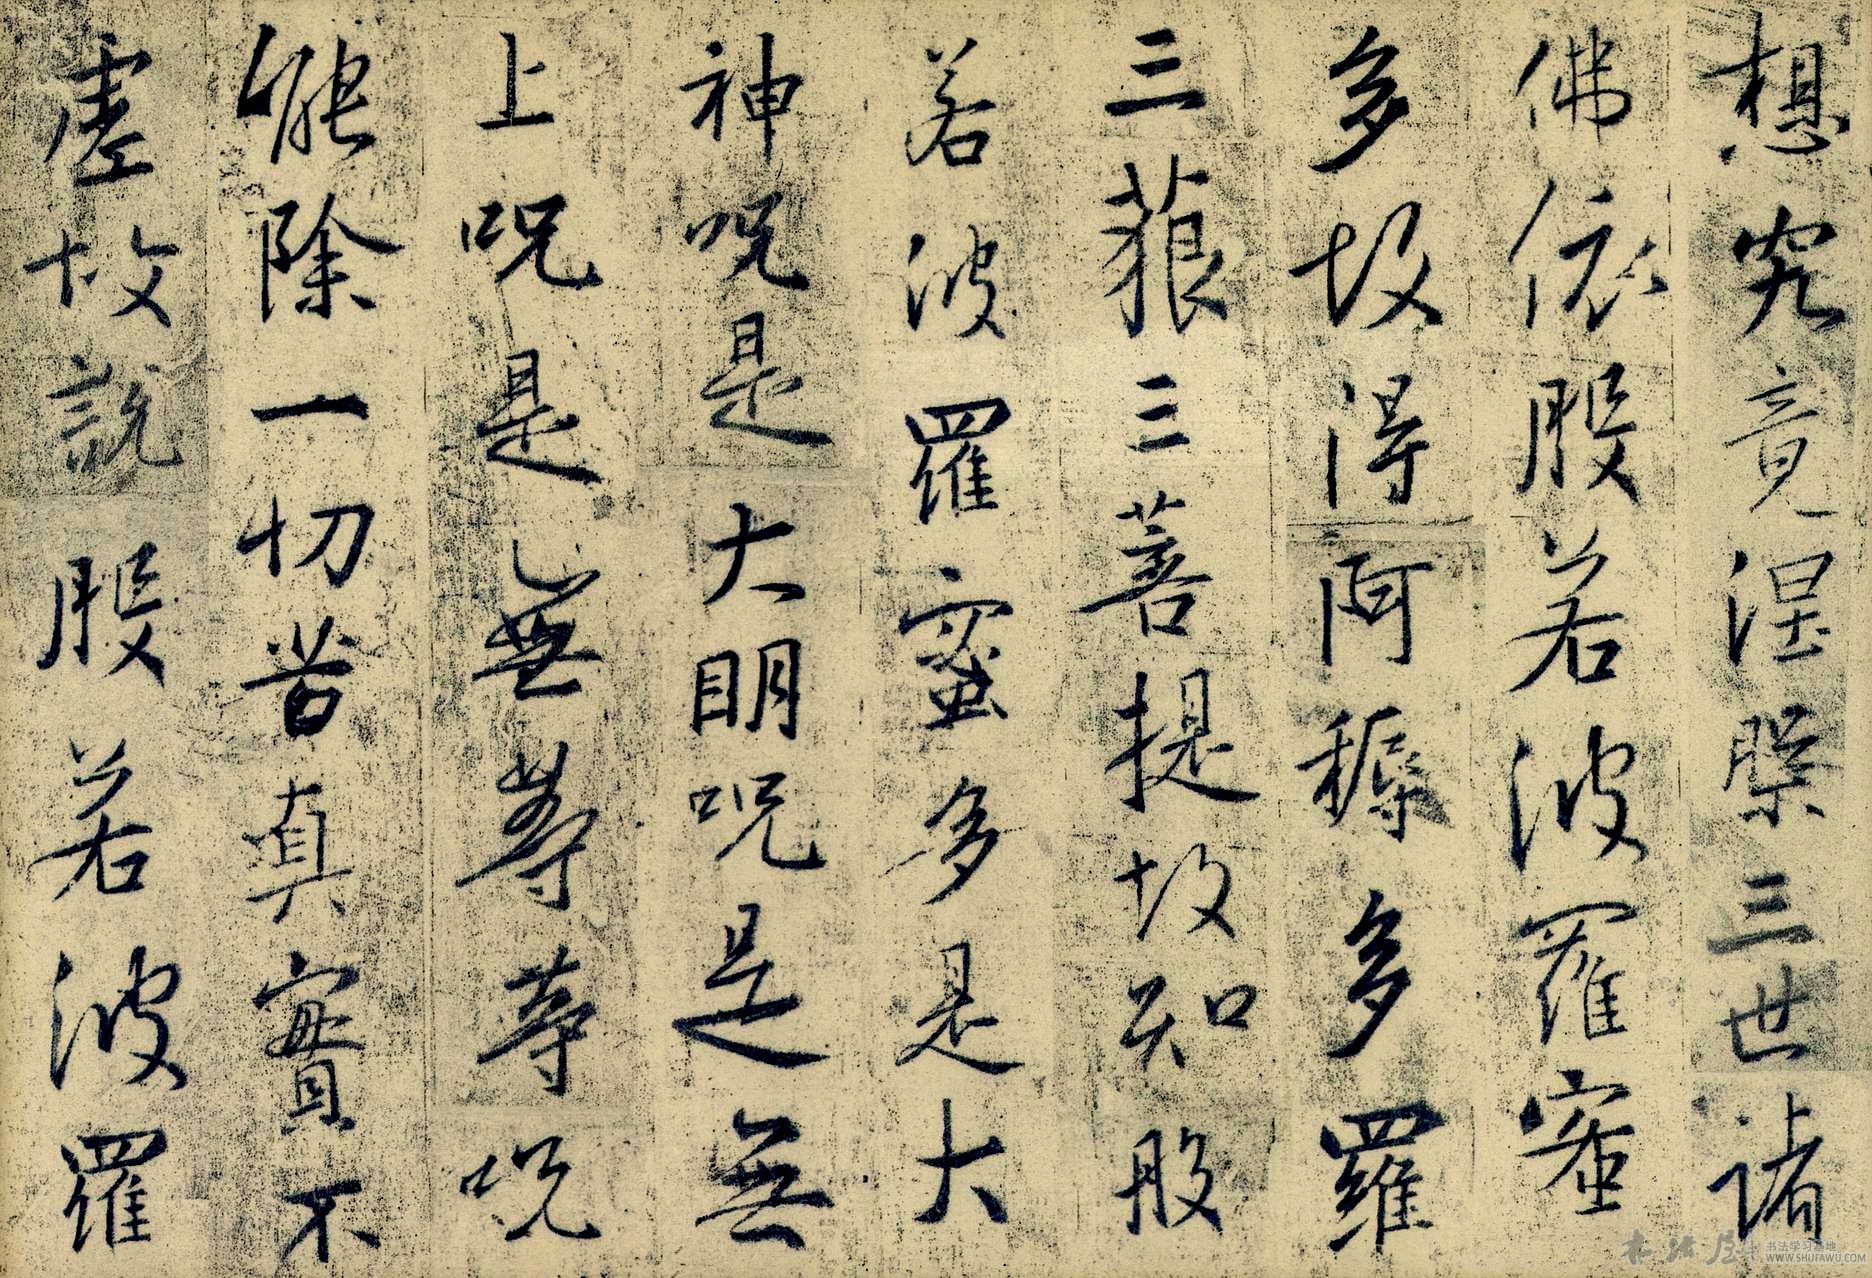 想究竟涅槃三世諸
佛依般若波羅蜜
多故得阿耨多羅
三藐三菩提故知般
若波羅蜜多是大
神呪是大明呪是無
上呪是無等等呪
能除一切苦真實不
虛故說般若波羅
书法屋
书法学习基地
WWW.SHUFAWU.COM